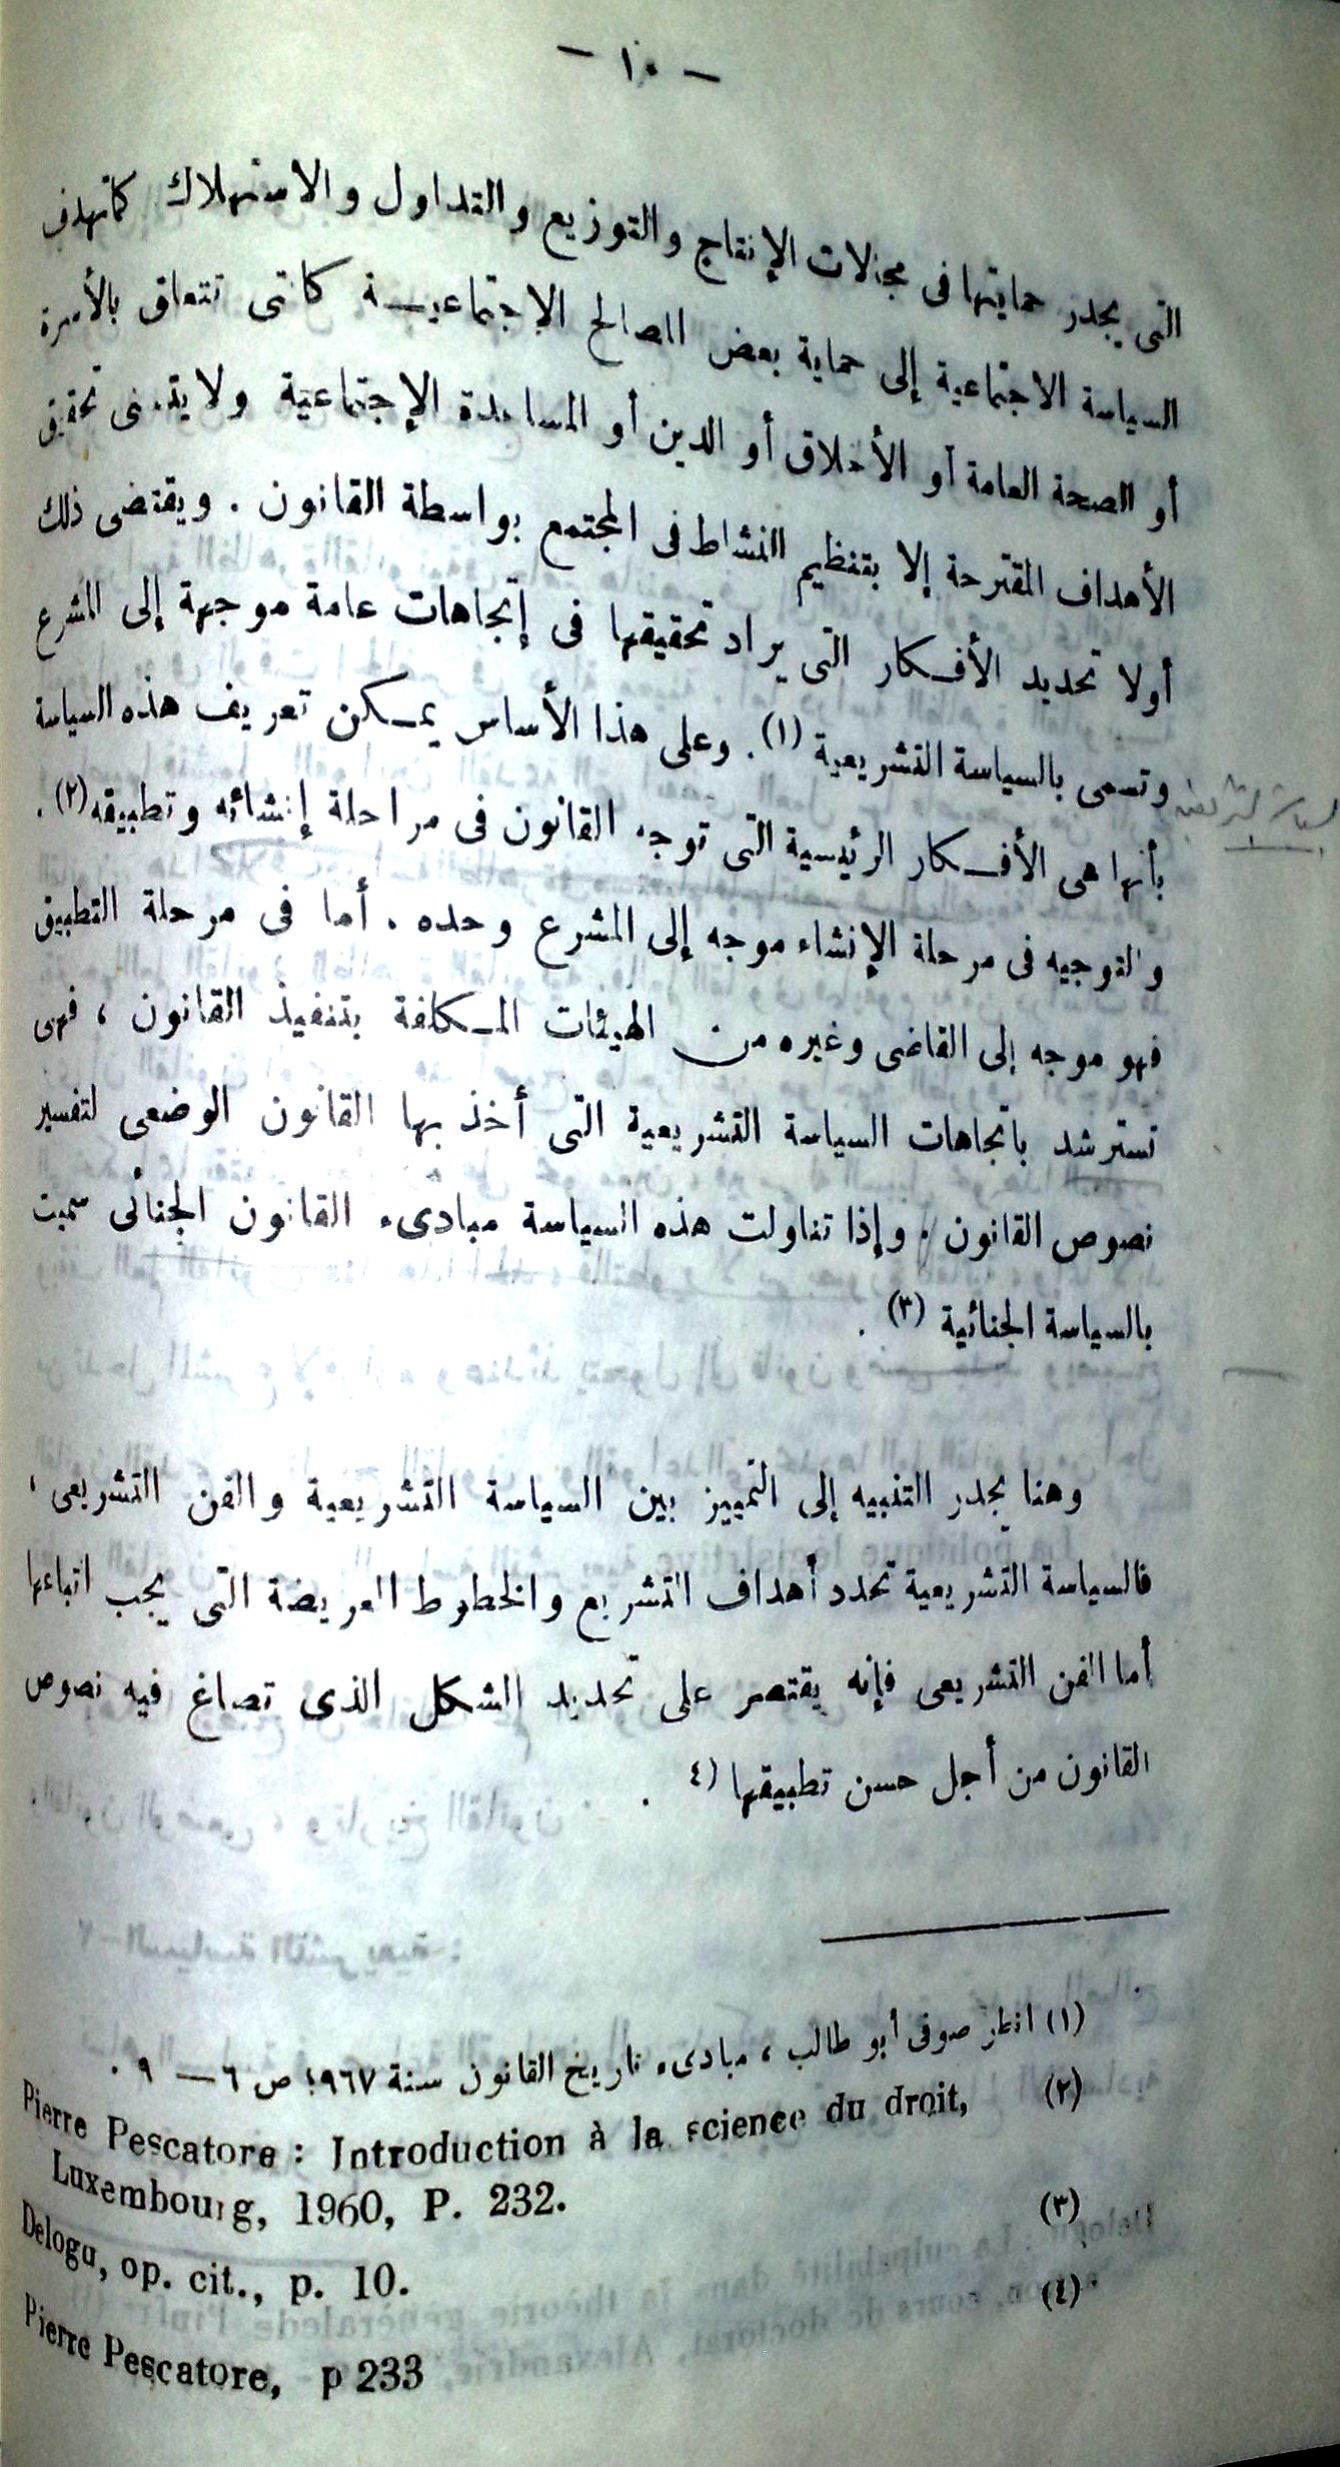 — ١٠ —
التى يجدر حمايتها فى مجالات الإنتاج والتوزيع والتداول والاستهلاك كما تهدف
السياسة الاجتماعية إلى حماية بعض المصالح الإجتماعيـــة كالتى تتعلق بالأسرة
أو الصحة العامة أو الأخلاق أو الدين أو المساعدة الإجتماعية ولا يتسنى تحقيق
الأهداف المقترحة إلا بتنظيم النشاط فى المجتمع بواسطة القانون . ويقتضى ذلك
أولا تحديد الأفــكار التى يراد تحقيقها فى إتجاهات عامة موجهة إلى المشرع
وتسمى بالسياسة التشريعية (١) . وعلى هذا الأساس يمــكن تعريف هذه السياسة
السياسة التشريعية
بأنها هى الأفــكار الرئيسية التى توجه القانون فى مراحلة إنشائه وتطبيقه (٢) .
والتوجيه فى مرحلة الإنشاء موجه إلى المشرع وحده . أما فى مرحلة التطبيق
فهو موجه إلى القاضى وغيره من الهيئات المــكلفة بتنفيذ القانون ، فهى
تسترشد باتجاهات السياسة التشريعية التى أخذ بها القانون الوضعى لتفسير
نصوص القانون . وإذا تناولت هذه السياسة مبادىء القانون الجنائى سميت
بالسياسة الجنائية (٣) .
وهنا يجدر التنبيه إلى التمييز بين السياسة التشريعية والفن التشريعى ،
فالسياسة التشريعية تحدد أهداف التشريع والخطوط العريضة التى يجب اتباعها
أما الفن التشريعى فإنه يقتصر على تحديد الشكل الذى تصاغ فيه نصوص
القانون من أجل حسن تطبيقها (٤ .
(١) انظر صوفى أبو طالب ، مبادىء تاريخ القانون سنة ١٩٦٧ ص ٦ — ٩ .
(٢) Pierre Pescatore : Introduction à la science du droit,
Luxembourg, 1960, P. 232.
(٣) Delogu, op. cit., p. 10.
(٤) Pierre Pescatore, p 233